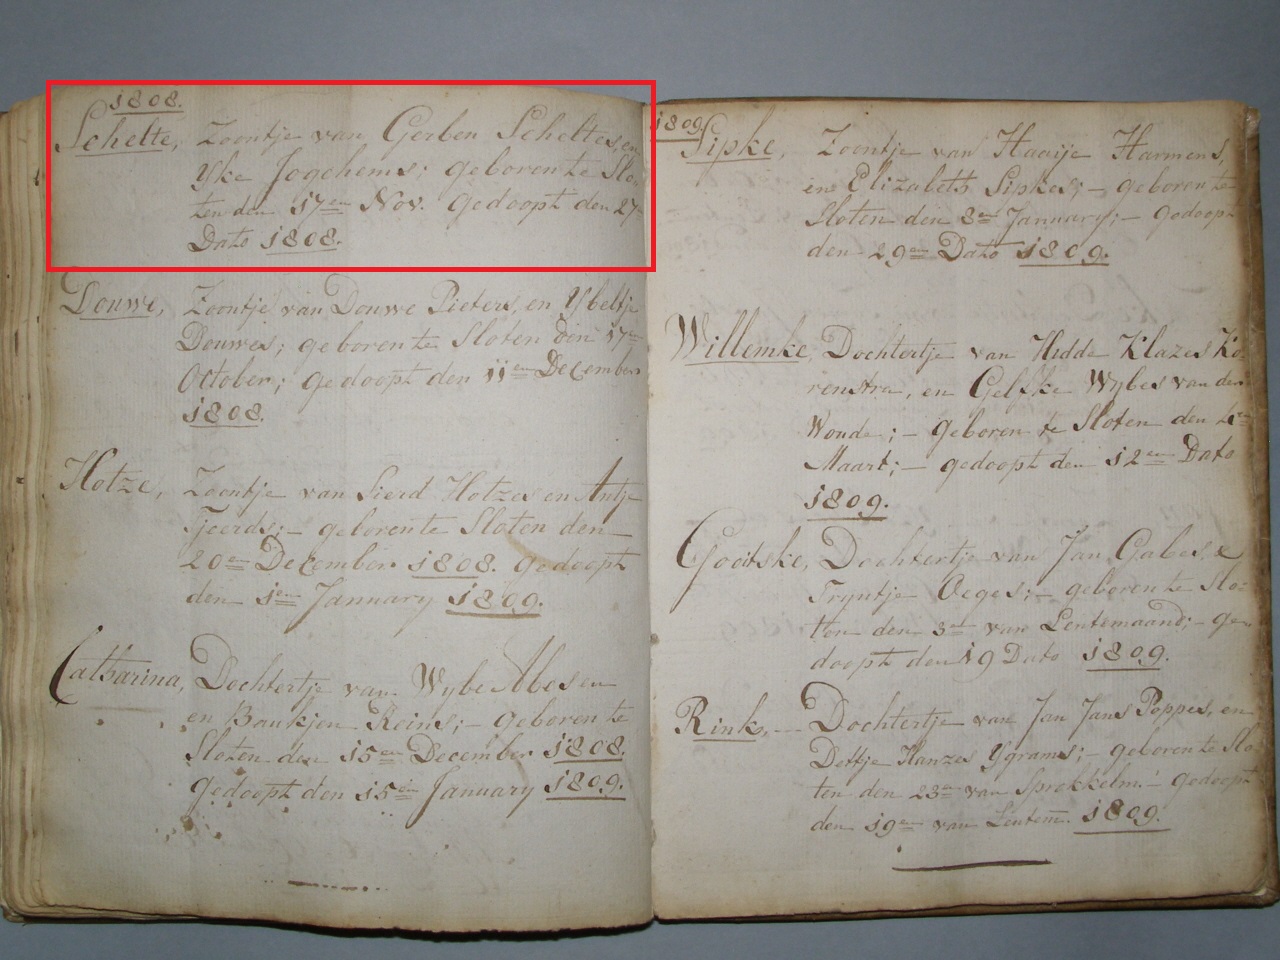 1808.
Schelte, Zoontje van Gerben Scheltes, en
Yke Jogchems; geboren te Slo-
ten den 17en Nov. Gedoopt den 27en
Dato 1808.
Douwe, Zoontje van Douwe Pieters, en Ybeltje
Douwes; geboren te Sloten den 17en
October; gedoopt den 11en December
1808.
Hotze, Zoontje van Sierd Hotzes en Antje
Tjeerds; - geboren te Sloten den
20en December 1808. gedoopt
den 1en January 1809.
Catharina, Dochtertje van Wybe Abes en
en Baukjen Reins; - geboren te
Sloten den 15en December 1808.
gedoopt den 15en January 1809.
1809.
Sipke, Zoontje van Haaije Harmens,
en Elizabeth Sipkes; - geboren te
Sloten den 8en January; - gedoopt
den 29en Dato 1809.
Willemke, Dochtertje van Hidde Klazes Ko-
renstra, en Gelfke Wybes van der
Woude; - geboren te Sloten den 4en
Maart; - gedoopt den 12en Dato
1809.
Goitske, Dochtertje van Jan Gabes, e
Tryntje Oeges; - geboren te Slo-
ten den 3en van Lentemaand; - ge-
doopt den 19 Dato 1809.
Rink, -- Dochtertje van Jan Jans Poppes, en
Dettje Hanzes Ygrams; - geboren te Slo-
ten den 23en van Sprokkelm. - gedoopt
den 19en van Lentem. 1809.